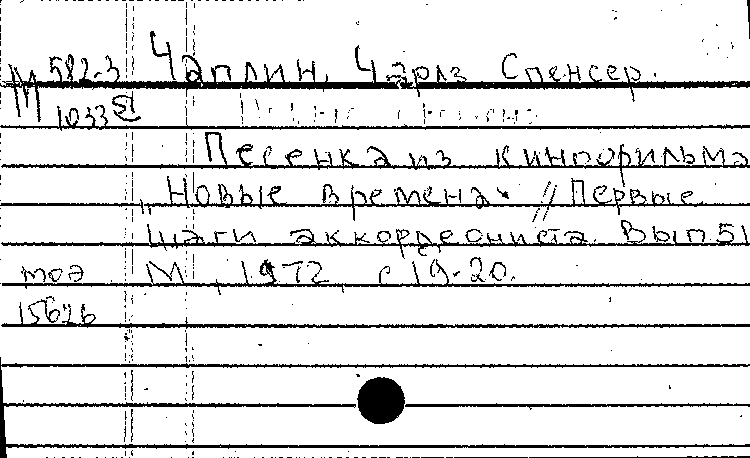 М 582-3 Чаплин, Чарлз Спенсер.
1033 51
Песенка из кинофильма
„Новые времена" // Первые
шаги аккордеониста. Вып 51
М, 1972, с 19-20.
тоэ
15626